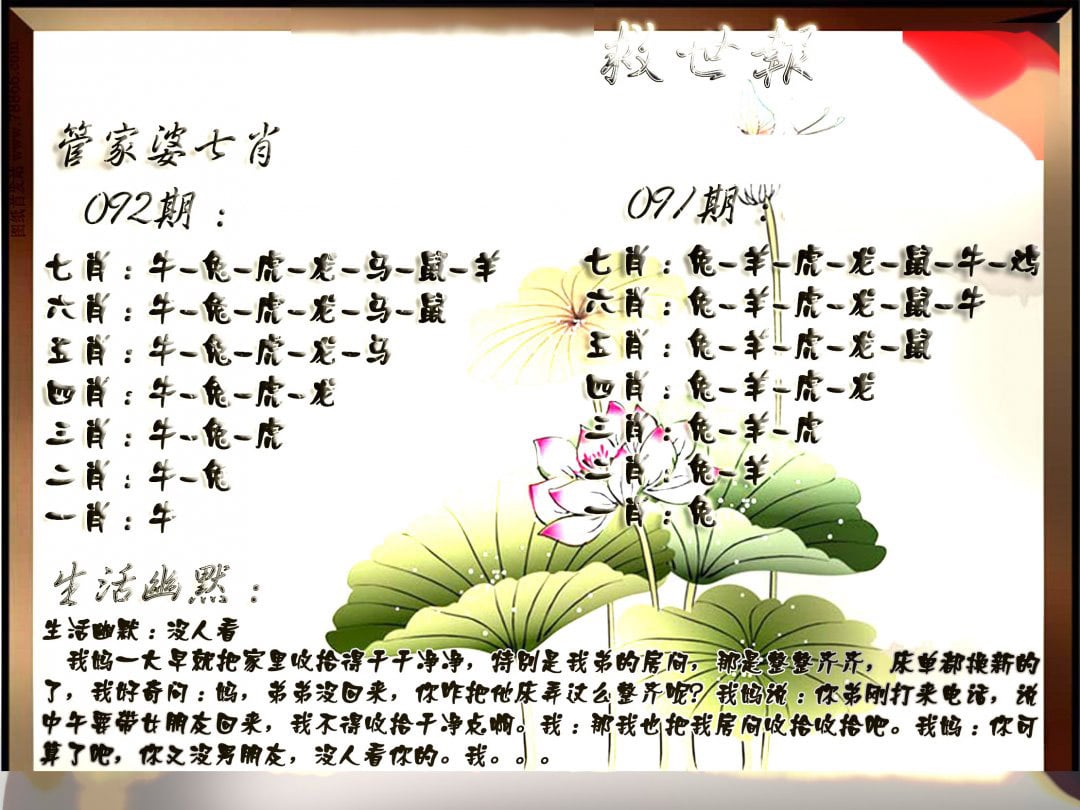 救世報
管家婆七肖
092期：
七肖：牛-兔-虎-龙-马-鼠-羊
六肖：牛-兔-虎-龙-马-鼠
五肖：牛-兔-虎-龙-马
四肖：牛-兔-虎-龙
三肖：牛-兔-虎
二肖：牛-兔
一肖：牛
091期：
七肖：兔-羊-虎-龙-鼠-牛-鸡
六肖：兔-羊-虎-龙-鼠-牛
五肖：兔-羊-虎-龙-鼠
四肖：兔-羊-虎-龙
三肖：兔-羊-虎
二肖：兔-羊
一肖：兔
生活幽默：
生活幽默：没人看
我妈一大早就把家里收拾得干干净净，特别是我弟的房间，那是整整齐齐，床单都换新的
了，我好奇问：妈，弟弟没回来，你咋把他床弄这么整齐呢？我妈说：你弟刚打来电话，说
中午要带女朋友回来，我不得收拾干净点啊。我：那我也把我房间收拾收拾吧。我妈：你可
算了吧，你又没男朋友，没人看你的。我。。。